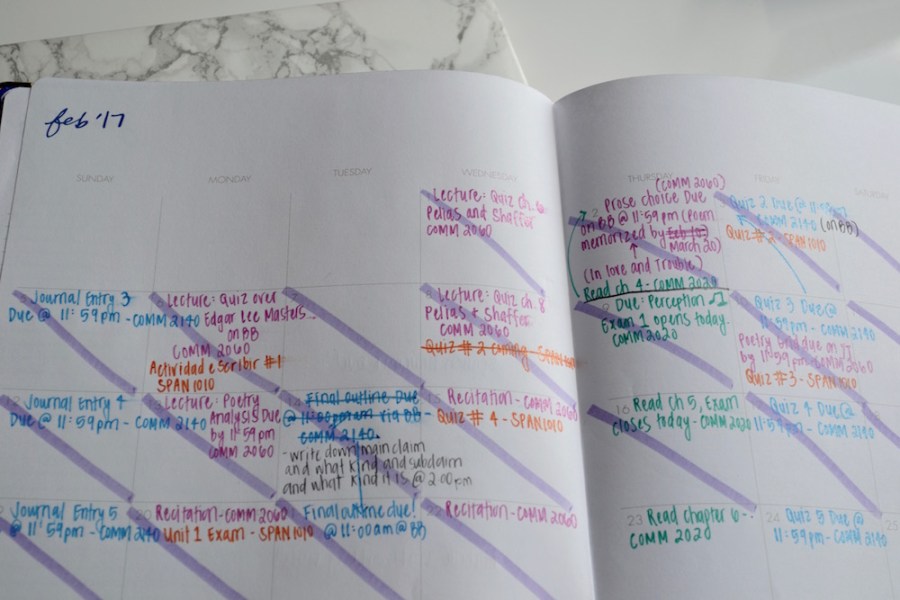 feb '17
SUNDAY
MONDAY
TUESDAY
WEDNESDAY
THURSDAY
FRIDAY
SATURDAY
Lecture: Quiz ch.
Pelias and Shaffer
COMM 2060
2
(COMM 2060)
Prose choice Due
on BB @ 11:59pm (Poem
memorized by Feb 10?
March 20)
(In Love and Trouble)
Read ch 4 - COMM 2020
Quiz 2 Due @ 11:59pm
COMM 2140 (on BB)
Quiz # 2 - SPAN 1010
5 Journal Entry 3
Due @ 11:59pm - COMM 2140
6 Lecture: Quiz over
Edgar Lee Masters...
on BB
COMM 2060
Actividad escribir #1
SPAN 1010
8 Lecture: Quiz ch. 8
Pelias + Shaffer
COMM 2060
Quiz # 2 coming - SPAN 1010
9 Due: Perception
Exam 1 opens today
COMM 2020
Quiz 3 Due @
11:59pm - COMM 2140
Poetry due on
by 11:59pm - COMM 2060
Quiz #3 - SPAN 1010
12 Journal Entry 4
Due @ 11:59pm - COMM 2140
13 Lecture: Poetry
Analysis Due
by 11:59pm
COMM 2060
14 Final outline Due
@ 11:00pm via BB -
COMM 2140.
- write down main claim
and what kind and subclaim
and what kind it is @ 2:00pm
15 Recitation - COMM 2060
Quiz # 4 - SPAN 1010
16 Read ch 5, Exam
closes today - COMM 2020
Quiz 4 Due @
11:59pm - COMM 2140
Journal Entry 5
@ 11:59pm - COMM 2140
20 Recitation - COMM 2060
Unit 1 Exam - SPAN 1010
Final outline due!
@ 11:00am @ BB
22 Recitation - COMM 2060
23 Read chapter 6 -
COMM 2020
24 Quiz 5 Due @
11:59pm - COMM 2140
25